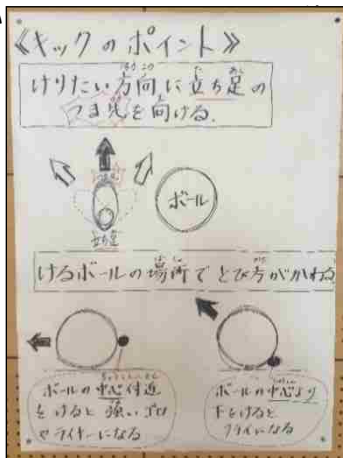 《キックのポイント》
けりたい方向に立ち足の
つま先を向ける。
ボール
立ち足
けるボールの場所でとび方がかわる
ボールの中心付近
をけると強いゴロ
やライナーになる
ボールの中心より
下をけると
フライになる